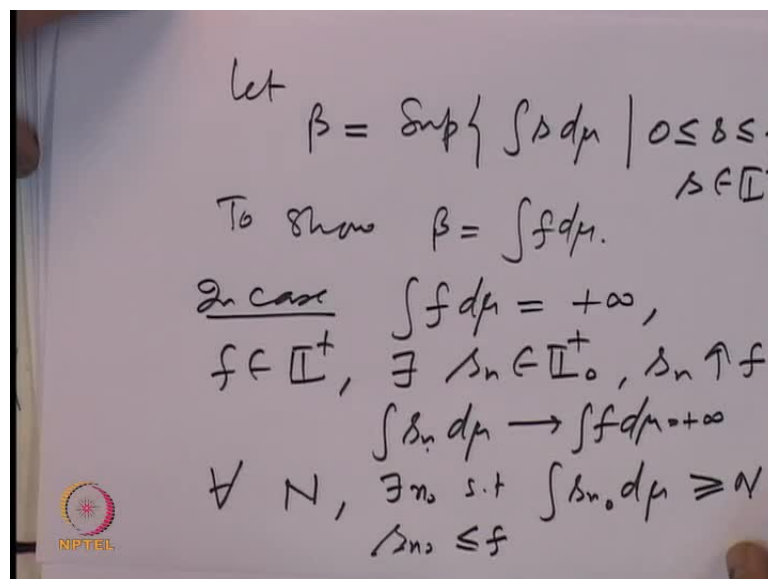 let
β = Sup{ ∫s dμ | 0 ≤ s ≤
s ∈ 𝕀
To show β = ∫f dμ.
In case ∫f dμ = +∞,
f ∈ 𝕀⁺, ∃ sₙ ∈ 𝕀₀⁺, sₙ ↑ f
∫sₙ dμ → ∫f dμ = +∞
∀ N, ∃ n₀ s.t ∫sₙ₀ dμ ≥ N
sₙ₀ ≤ f
NPTEL